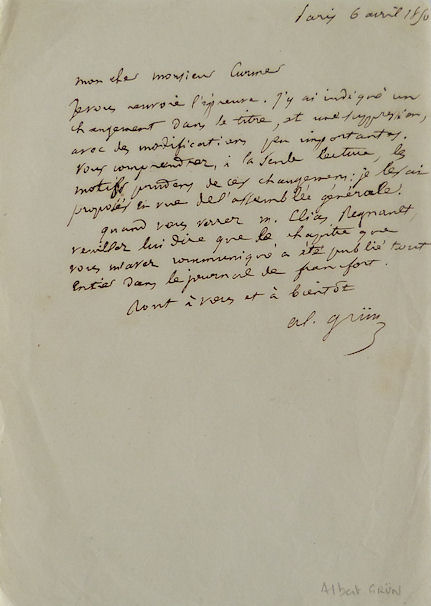 Paris 6 avril 1850
mon cher monsieur Curmer
Je vous renvoie l'épreuve. J'y ai indiqué un
changement dans le titre, et une suppression,
avec des modifications peu importantes.
Vous comprendrez, à la seule lecture, les
motifs prudens de ces changemens; je les ai
proposés en vue de l'assemblée générale.
quand vous verrez m. Elias Regnault,
veuillez lui dire que le chapitre que
vous m'avez communiqué a été publié tout
entier dans le journal de francfort.
tout à vous et à bientôt
al. grün
Albert GRÜN